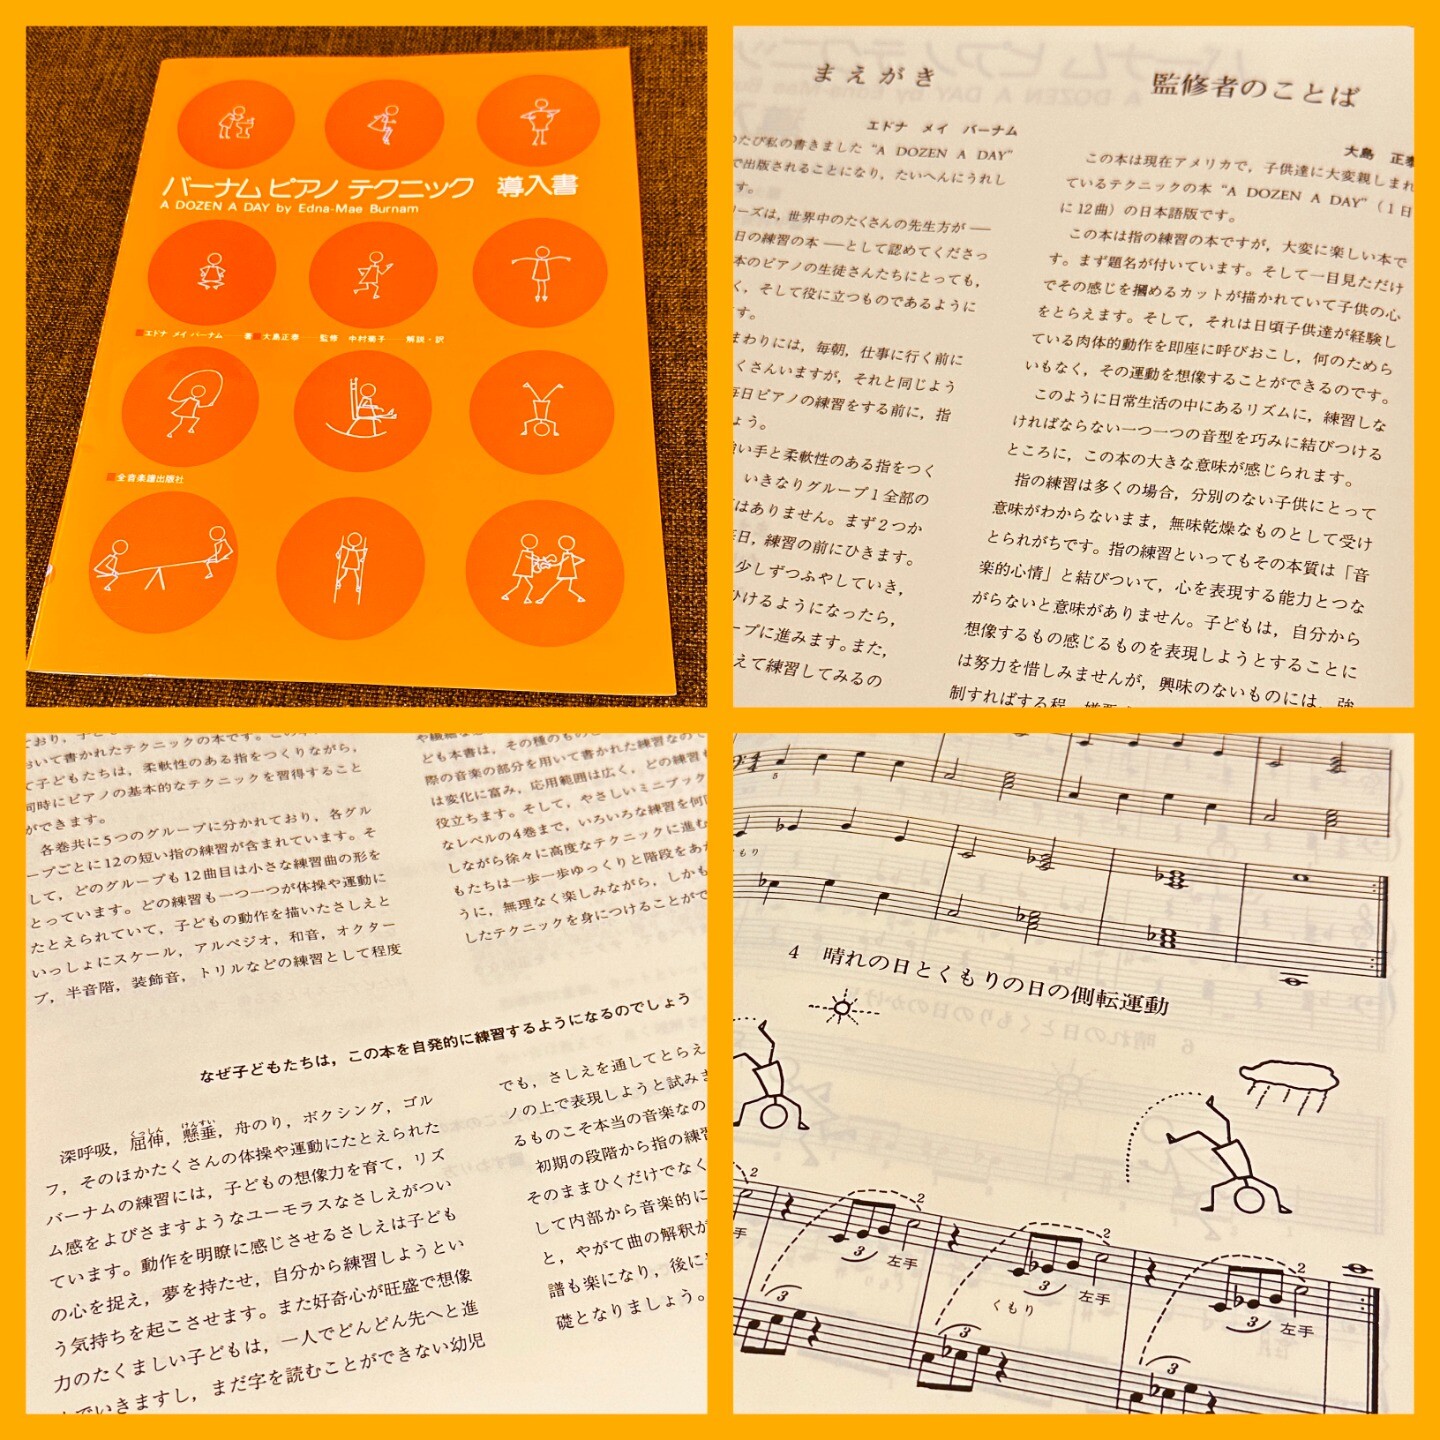 バーナム ピアノ テクニック 導入書
A DOZEN A DAY by Edna-Mae Burnam
■エドナ メイ バーナム——著■大島正泰——監修 中村菊子——解説・訳
■全音楽譜出版社
まえがき
エドナ メイ バーナム
のたび私の書きました“A DOZEN A DAY”
で出版されることになり，たいへんにうれし
す。
リーズは，世界中のたくさんの先生方が——
日の練習の本——として認めてくださっ
本のピアノの生徒さんたちにとっても，
く，そして役に立つものであるように
す。
まわりには，毎朝，仕事に行く前に
くさんいますが，それと同じよう
毎日ピアノの練習をする前に，指
ょう。
強い手と柔軟性のある指をつく
いきなりグループ1全部の
はありません。まず2つか
日，練習の前にひきます。
少しずつふやしていき，
ひけるようになったら，
ープに進みます。また，
えて練習してみるの
監修者のことば
大島 正泰
この本は現在アメリカで，子供達に大変親しまれ
ているテクニックの本“A DOZEN A DAY”（1日
に12曲）の日本語版です。
この本は指の練習の本ですが，大変に楽しい本で
す。まず題名が付いています。そして一目見ただけ
でその感じを摑めるカットが描かれていて子供の心
をとらえます。そして，それは日頃子供達が経験し
ている肉体的動作を即座に呼びおこし，何のためら
いもなく，その運動を想像することができるのです。
このように日常生活の中にあるリズムに，練習しな
ければならない一つ一つの音型を巧みに結びつける
ところに，この本の大きな意味が感じられます。
指の練習は多くの場合，分別のない子供にとって
意味がわからないまま，無味乾燥なものとして受け
とられがちです。指の練習といってもその本質は「音
楽的心情」と結びついて，心を表現する能力とつな
がらないと意味がありません。子どもは，自分から
想像するもの感じるものを表現しようとすることに
は努力を惜しみませんが，興味のないものには，強
制すればする程
ており，子ど
おいて書かれたテクニックの本です。この
て子どもたちは，柔軟性のある指をつくりながら，
同時にピアノの基本的なテクニックを習得すること
ができます。
各巻共に5つのグループに分かれており，各グル
ープごとに12の短い指の練習が含まれています。そ
して，どのグループも12曲目は小さな練習曲の形を
とっています。どの練習も一つ一つが体操や運動に
たとえられていて，子どもの動作を描いたさしえと
いっしょにスケール，アルペジオ，和音，オクター
ブ，半音階，装飾音，トリルなどの練習として程度
ども本書は，その種のものと
際の音楽の部分を用いて書かれた練習なので
は変化に富み，応用範囲は広く，どの練習も
役立ちます。そして，やさしいミニブック
なレベルの4巻まで，いろいろな練習を何
しながら徐々に高度なテクニックに進む
もたちは一歩一歩ゆっくりと階段をあが
うに，無理なく楽しみながら，しかも
したテクニックを身につけることがで
なぜ子どもたちは，この本を自発的に練習するようになるのでしょう
くっしん けんすい
深呼吸，屈伸，懸垂，舟のり，ボクシング，ゴル
フ，そのほかたくさんの体操や運動にたとえられた
バーナムの練習には，子どもの想像力を育て，リズ
ム感をよびさますようなユーモラスなさしえがつい
ています。動作を明瞭に感じさせるさしえは子ども
の心を捉え，夢を持たせ，自分から練習しようとい
う気持ちを起こさせます。また好奇心が旺盛で想像
力のたくましい子どもは，一人でどんどん先へと進
んでいきますし，まだ字を読むことができない幼児
でも，さしえを通してとらえ
ノの上で表現しようと試みま
るものこそ本当の音楽なの
初期の段階から指の練習
そのままひくだけでなく
して内部から音楽的に
と，やがて曲の解釈が
譜も楽になり，後に
礎となりましょう。
5
もり
4 晴れの日とくもりの日の側転運動
2 2 2 2
手 3 左手 3 左手 3 左手
くもり
3 3 3